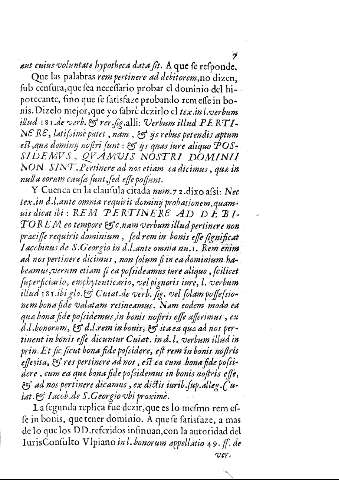 7
aut cuius voluntate hypotheca data sit. A que se responde.
Que las palabras rem pertinere ad debitorem, no dizen,
sub censura, que sea necessario probar el dominio del hi-
potecante, sino que se satisfaze probando rem esse in bo-
nis. Dizelo mejor, que yo sabrè dezirlo el tex. in l. verbum
illud 181. de verb. & rer. sig. alli: Verbum illud PERTI-
NERE, latissimè patet, nam, & ijs rebus petendis aptum
est, quæ dominij nostri sunt: & ijs quas iure aliquo POS-
SIDEMVS, QVAMVIS NOSTRI DOMINII
NON SINT. Pertinere ad nos etiam ea dicimus, quæ in
nulla eorum causa sunt, sed esse possunt.
Y Cuenca en la clausula citada num. 72. dixo assi: Nec
tex. in d. l. ante omnia requirit dominij probationem, quam-
uis dicat ibi: REM PERTINERE AD DEBI-
TOREM eo tempore &c. nam verbum illud pertinere non
præcisse requirit dominium, sed rem in bonis esse significat
Iacobinus de S. Georgio in d. l. ante omnia nu. 1. Rem enim
ad nos pertinere dicimus, non solum si in ea dominium ha-
beamus, verum etiam si ea possideamus iure aliquo, scilicet
superficiario, emphyteuticario, vel pignoris iure, l. verbum
illud 181. ibi glo. & Cuiat. de verb. sig. vel solam possessio-
nem bona fide valatam retineamus. Nam eodem modo ea
quæ bona fide possidemus, in bonis nostris esse asserimus, ex
d. l. bonorum, & d. l. rem in bonis, & ita ea quæ ad nos per-
tinent in bonis esse dicuntur Cuiat. in d. l. verbum illud in
prin. Et sic sicut bona fide possidere, est rem in bonis nostris
esse vita, & res pertinere ad nos, est ea cum bona fide possi-
dere, cum ea quæ bona fide possidemus in bonis nostris esse,
& ad nos pertinere dicamus, ex dictis iurib. sup. alleg. Cu-
iat. & Iacob. de S. Georgio vbi proximè.
La segunda replica fue dezir, que es lo mesmo rem es-
se in bonis, que tener dominio. A que se satisfaze, a mas
de lo que los DD. referidos insinuan, con la autoridad del
IurisConsulto Vlpiano in l. bonorum appellatio 49. ff. de
ver.